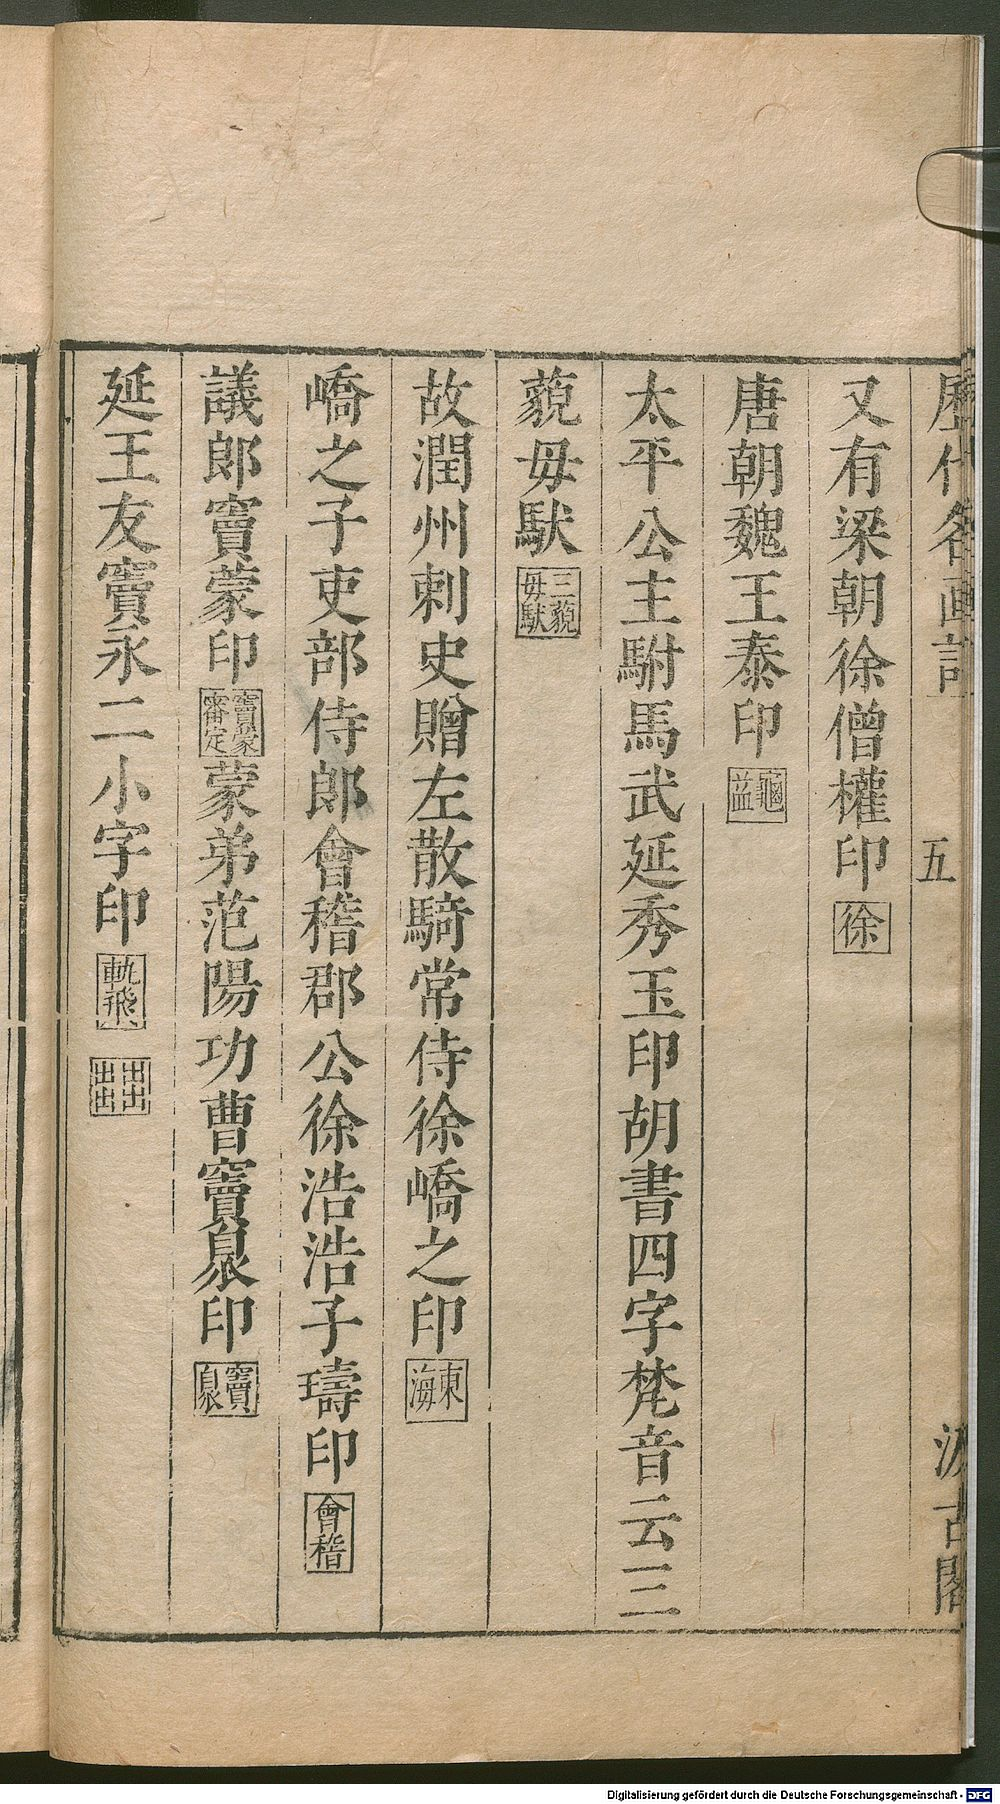 歷代名画記 五 汲古閣
又有梁朝徐僧權印徐
唐朝魏王泰印龜益
太平公主駙馬武延秀玉印胡書四字梵音云三
藐毋馱三藐毋馱
故潤州刺史贈左散騎常侍徐嶠之印東海
嶠之子吏部侍郎會稽郡公徐浩浩子璹印會稽
議郎竇蒙印竇蒙審定蒙弟范陽功曹竇臮印竇臮
延王友竇永二小字印軌飛
Digitalisierung gefördert durch die Deutsche Forschungsgemeinschaft - DFG